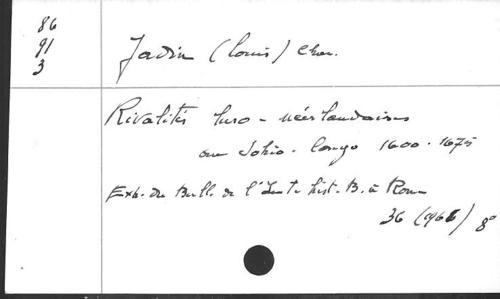 86
91
3
Jadin (Louis) Chan.
Rivalités luso-néerlandaises
au Sohio-Congo 1600-1675
Ext. du Bull. de l'Inst. hist. B. à Rome
36 (1966) 8°